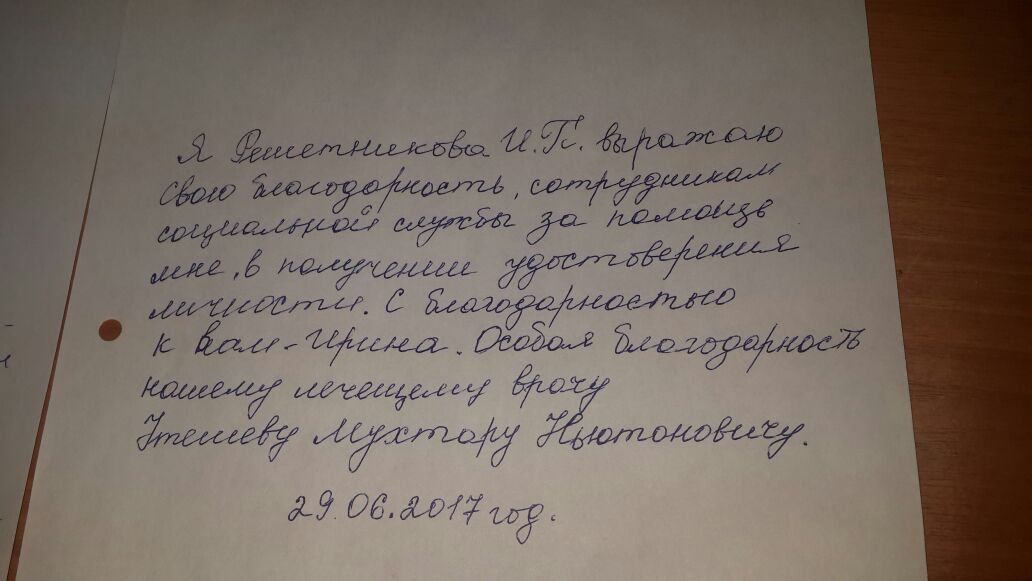 Я Решетникова И.П. выражаю
свою благодарность, сотрудникам
социальной службы за помощь
мне, в получении удостоверения
личности. С благодарностью
к Вам - Ирина. Особая благодарность
нашему лечещему врачу
Утешеву Мухтару Ньютоновичу.
29.06.2017 год.